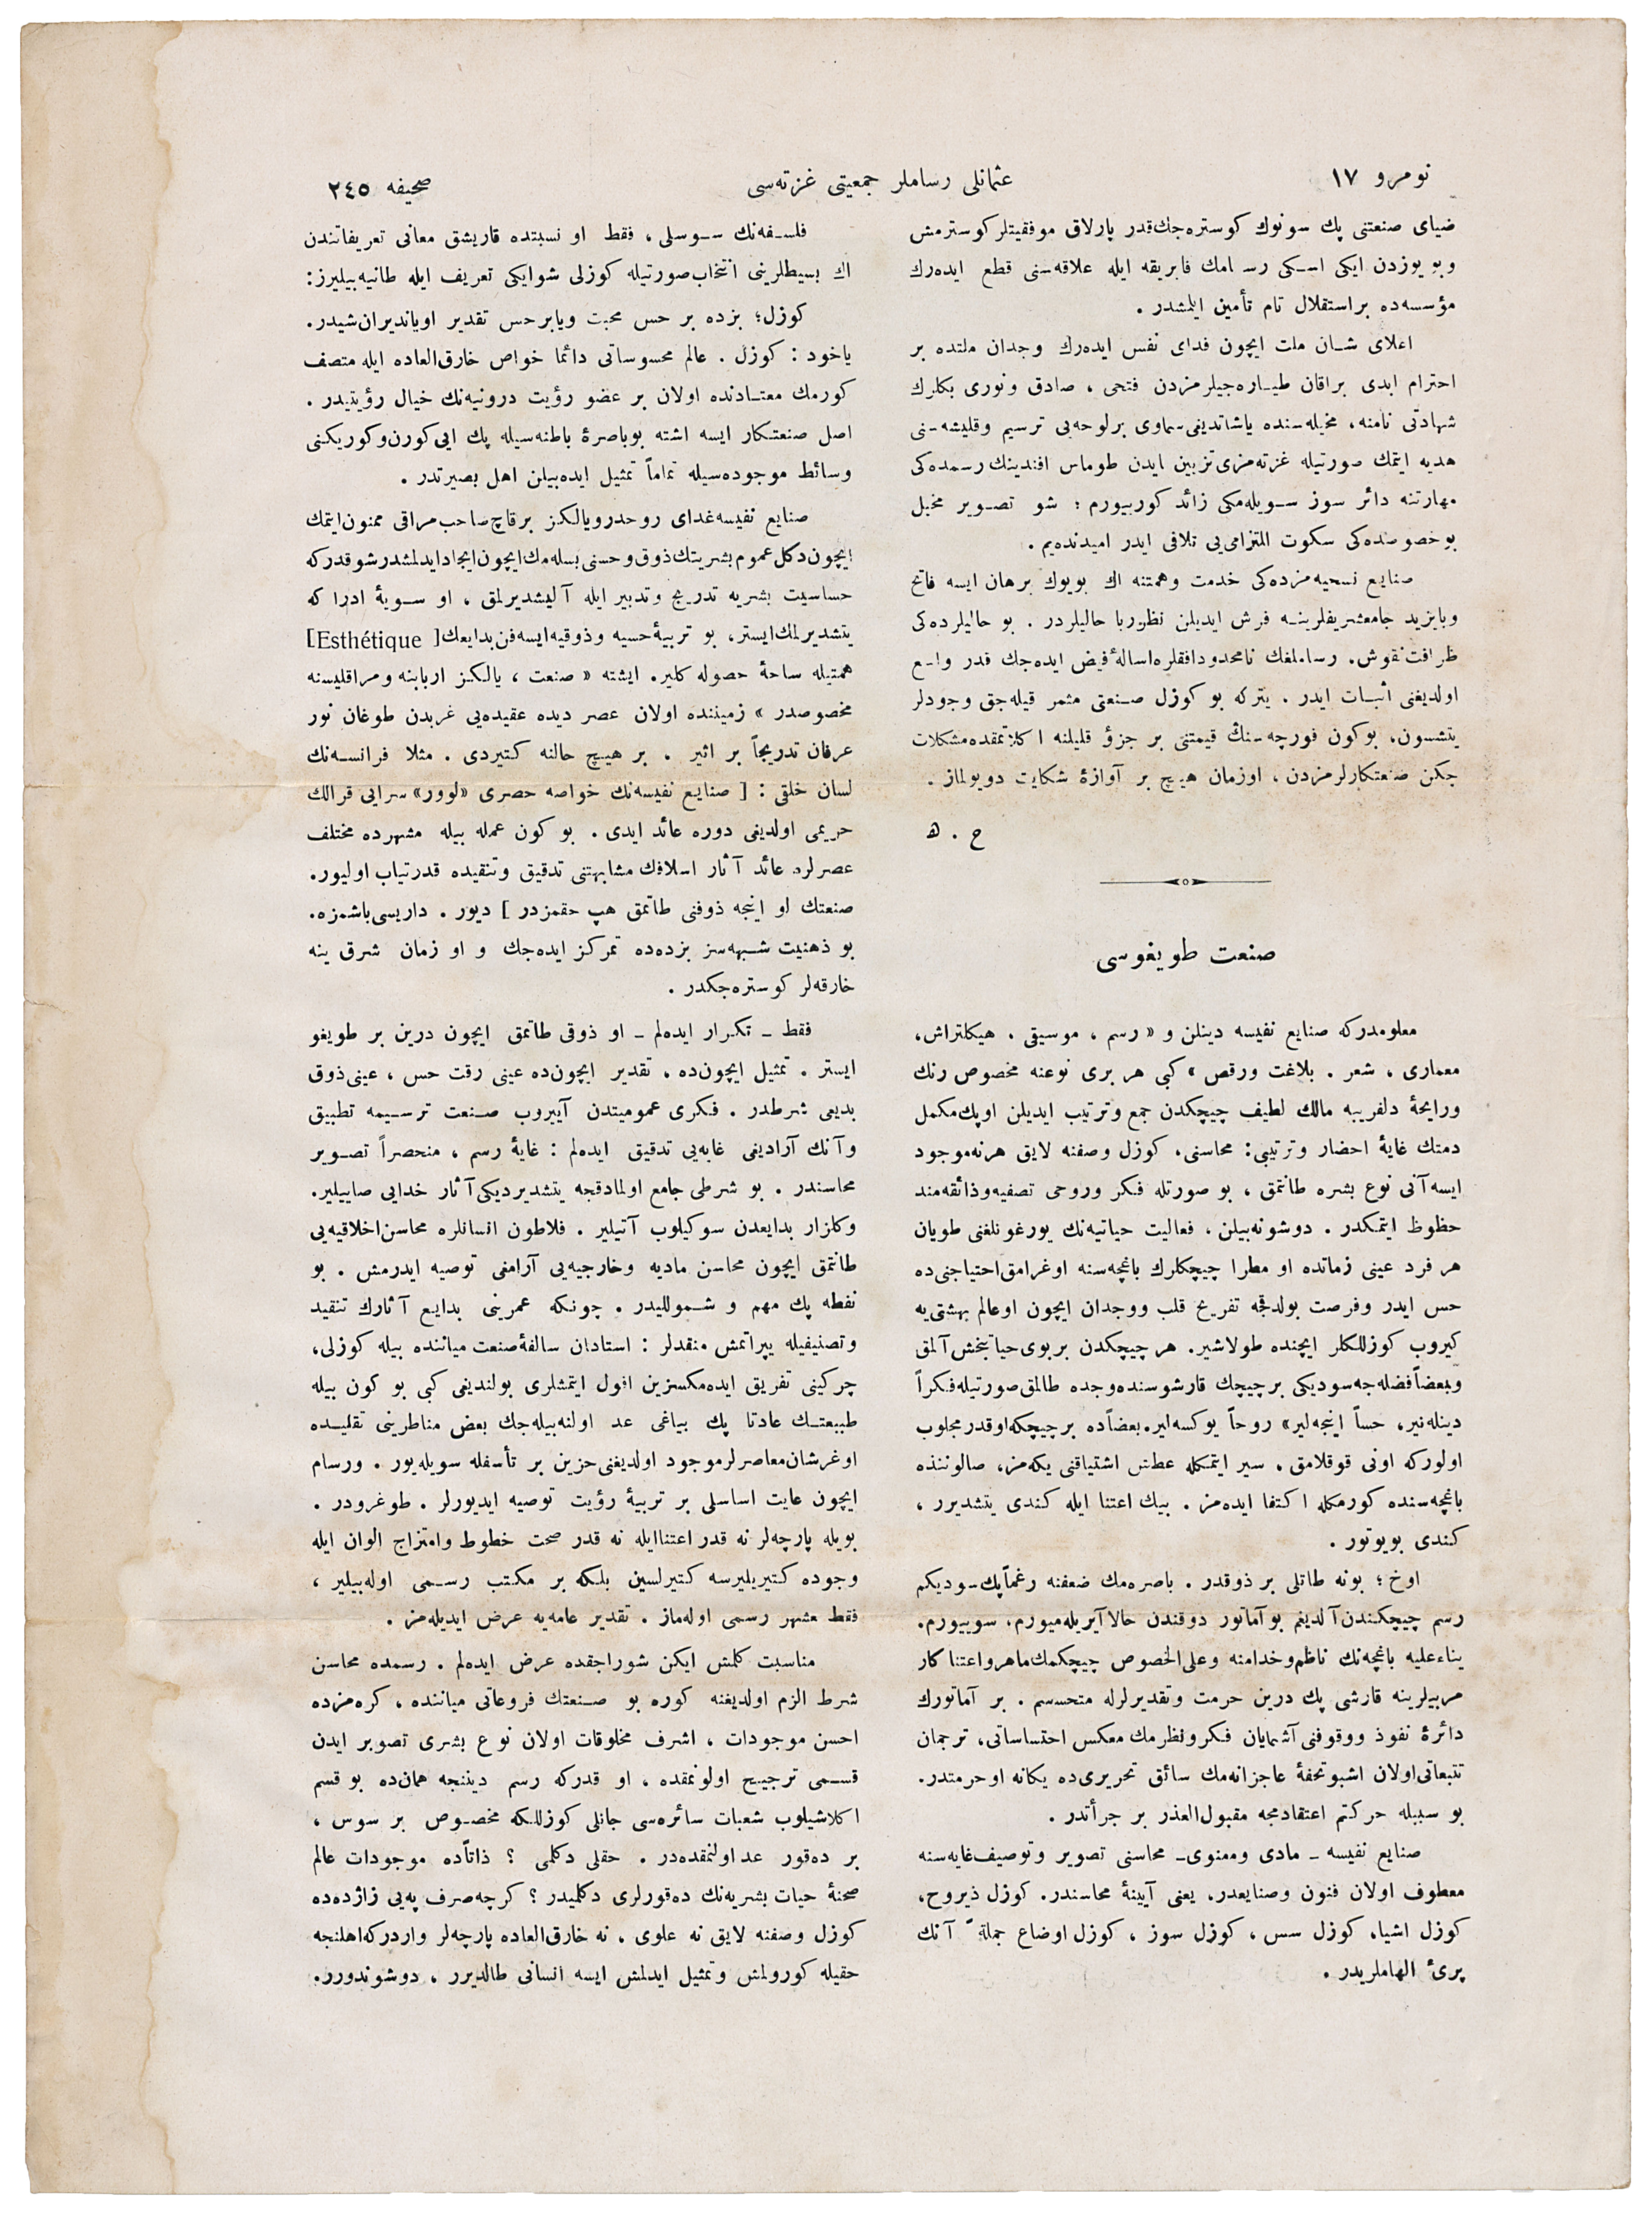 نومرو ١٧
عثمانلى رساملر جمعيتى غزته‌سى
صحيفه ٢٤٥
ضياى صنعتنى پك سونوك كوستره‌جك‌قدر پارلاق موفقيتلر كوسترمش
وبو يوزدن ايكى اسكى رسامك فابريقه ايله علاقه‌سنى قطع ايده‌رك
مؤسسه‌ده بر استقلال تام تأمين ايلمشدر .
اعلاى شان ملت ايچون فداى نفس ايده‌رك وجدان ملتده بر
احترام ابدى براقان طياره‌جيلرمزدن فتحى ، صادق ونورى بكلرك
شهادتى نامنه، مخيله‌سنده ياشاتديغى سماوى برلوحه‌يى ترسيم وقليشه‌نى
هديه ايتمك صورتيله غزته‌مزى تزيين ايدن طوماس افندينك رسمده‌كى
مهارتنه دائر سوز سويله‌مكى زائد كوريیورم ؛ شو تصوير مخيل
بوخصوصده‌كى سكوت التزامى‌يى تلافى ايدر اميدنده‌يم .
صنايع نسجيه‌مزده‌كى خدمت وهمتنه اك بويوك برهان ايسه فاتح
وبايزيد جامعشريفلرينه فرش ايديلن نظرربا حاليلردر . بو حاليلرده‌كى
ظرافت نقوش، رساملغك نامحدود افقلره اسالۀ فيض ايده‌جك قدر واسع
اولديغنى اثبات ايدر . يتركه بو كوزل صنعتى مثمر قيله‌جق وجودلر
يتشسون، بوكون فورچه‌نك قيمتنى بر جزؤ قليلنه اكلاتمقده‌مشكلات
چكن صنعتكارلرمزدن ، اوزمان هيچ بر آوازۀ شكايت دويولماز .
ح . ه
صنعت طويغوسى
معلومدركه صنايع نفيسه دينلن و « رسم ، موسيقى . هيكلتراش،
معمارى ، شعر . بلاغت ورقص » كبى هر برى نوعنه مخصوص رنك
ورايحۀ دلفريبه مالك لطيف چيچكدن جمع وترتيب ايديلن اوپك‌مكمل
دمتك غايۀ احضار وترتيبى: محاسنى، كوزل وصفنه لايق هرنه‌موجود
ايسه آنى نوع بشره طانتمق ، بو صورتله فكر وروحى تصفيه‌وذائقه‌مند
حظوظ ايتمكدر . دوشونه‌بيلن ، فعاليت حياتيه‌نك يورغونلغنى طويان
هر فرد عينى زمانده او مطرا چيچكلرك باغچه‌سنه اوغرامق‌احتياجنى‌ده
حس ايدر وفرصت بولدقجه تفريح قلب ووجدان ايچون اوعالم بهشتى‌يه
كيروب كوزللكلر ايچنده طولاشير. هر چيچكدن بربوى‌حياتبخش‌آلمق
وبعضاً فضله‌جه‌سوديكى بر چيچك قارشوسنده‌وجده طالمق‌صورتيله‌فكراً
دينله‌نير، حساً اينجه‌لير» روحاً يوكسه‌لير. بعضاًده بر چيچكه‌اوقدرمجلوب
اولوركه اونى قوقلامق . سير ايتمكله عطش اشتياقنى يكه‌مز، صالوننده
باغچه‌سنده كورمكله اكتفا ايده‌مز . بيك اعتنا ايله كندى يتشديرر ،
كندى بويوتور .
اوخ ؛ بونه طاتلى بر ذوقدر . باصره‌مك ضعفنه رغماًپك‌سوديكم
رسم چيچكندن‌آلديغم بوآماتور ذوقندن حالا آيريله‌ميورم، سوييورم.
بناءعليه باغچه‌نك ناظم‌وخدامنه وعلى‌الخصوص چيچكمك‌ماهر واعتناكار
مربيلرينه قارشى پك درين حرمت وتقديرلرله متحسسم . بر آماتورك
دائرۀ نفوذ ووقوفنى آشمايان فكرونظرمك معكس احتساساتى، ترجمان
تتبعاتى‌اولان اشبوتحفۀ عاجزانه‌مك سائق تحريرى‌ده يكانه اوحرمتدر.
بو سببله حركتم اعتقادمجه مقبول‌العذر بر جرأتدر .
صنايع نفيسه ـ مادى ومعنوى‌ـ محاسنى تصوير وتوصيف‌غايه‌سنه
معطوف اولان فنون وصنايعدر، يعنى آيينۀ محاسندر. كوزل ذيروح،
كوزل اشيا، كوزل سس ، كوزل سوز ، كوزل اوضاع جملةً آنك
پرئ الهاملريدر .
فلسفه‌نك سوسلى ، فقط او نسبتده قاريشق معانى تعريفاتندن
اك بسيطلرينى انتخاب صورتيله كوزلى شوايكى تعريف ايله طانيه‌بيليرز:
كوزل؛ بزده بر حس محبت ويابرحس تقدير اوياندیران‌شيدر.
ياخود : كوزل . عالم محسوساتى دائما خواص خارق‌العاده ايله متصف
كورمك معتادنده اولان بر عضو رؤيت درونيه‌نك خيال رؤيتيدر .
اصل صنعتكار ايسه اشته بوباصرۀ باطنه‌سيله پك ايى‌كورن‌وكوريكنى
وسائط موجوده‌سيله تماماً تمثيل ايده‌بيلن اهل بصيرتدر .
صنايع نفيسه‌غداى روحدرويالكز برقاچ‌صاحب‌مراقى ممنون‌ايتمك
ايچون‌دكل‌عموم‌بشريتك‌ذوق‌وحسنى‌بسله‌مك‌ايچون‌ايجادايدلمشدرشوقدركه
حساسيت بشريه تدريج وتدبير ايله آليشديرلمق ، او سويۀ ادراكه
يتشديرلمك‌ايستر، بو تربيۀ حسيه وذوقيه‌ايسه‌فن‌بدايعك [Esthétique]
همتيله ساحۀ حصوله كلير. ايشته « صنعت ، يالكز اربابنه ومراقليسنه
مخصوصدر » زميننده اولان عصر ديده عقيده‌يى غربدن طوغان نور
عرفان تدريجاً بر اثير . بر هيچ حالنه كتيردى . مثلا فرانسه‌نك
لسان خلقى : [ صنايع نفيسه‌نك خواصه حصرى «لوور» سرايى قرالك
حريمى اولديغى دوره عائد ايدى . بو كون عمله بيله مشهرده مختلف
عصرلره عائد آثار اسلافك مشابهتنى تدقيق وتنقيده قدرتياب اوليور.
صنعتك او اينجه ذوقنى طاتمق هپ حقمزدر ] ديور . داريسى‌باشمزه.
بو ذهنيت شبهه‌سز بزده‌ده تمركز ايده‌جك و او زمان شرق ينه
خارقه‌لر كوستره‌جكدر .
فقط ـ تكرار ايده‌لم ـ او ذوقى طاتمق ايچون درين بر طويغو
ايستر . تمثيل ايچون‌ده ، تقدير ايچون‌ده عينى رقت حس ، عينى‌ذوق
بديعى شرطدر . فكرى عموميتدن آييروب صنعت ترسيمه تطبيق
وآنك آراديغى غايه‌يى تدقيق ايده‌لم : غايۀ رسم ، منحصراً تصوير
محاسندر . بو شرطى جامع اولمادقجه يتشديرديكى‌آثار خدايى صاييلير.
وكلزار بدايعدن سوكيلوب آتيلير . فلاطون انسانلره محاسن‌اخلاقيه‌يى
طانتمق ايچون محاسن ماديه وخارجيه‌يى آرامغى توصيه ايدرمش . بو
نقطه پك مهم و شموللیدر . چونكه عمرينى بدايع آثارك تنقيد
وتصنيفيله يپراتمش منقدلر : استادان سالفۀ صنعت مياننده بيله كوزلى،
چركينى تفريق ايده‌مكسزين افول ايتمشلرى بولنديغى كبى بو كون بيله
طبيعتك عادتا پك بياغى عد اولنه‌بيله‌جك بعض مناظرينى تقليده
اوغرشان‌معاصرلرموجود اولديغنى‌حزين بر تأسفله سويله‌يور . ورسام
ايچون غايت اساسلى بر تربيۀ رؤيت توصيه ايديورلر . طوغرودر .
بويله پارچه‌لر نه قدر اعتناايله نه قدر صحت خطوط وامتزاج الوان ايله
وجوده كتيريليرسه كتيرلسين بلكه بر مكتب رسمى اوله‌بيلير ،
فقط مشهر رسمى اوله‌ماز . تقدير عامه‌يه عرض ايديله‌مز .
مناسبت كلمش ايكن شوراجقده عرض ايده‌لم . رسمده محاسن
شرط الزم اولديغنه كوره بو صنعتك فروعاتى مياننده ، كره‌مزده
احسن موجودات ، اشرف مخلوقات اولان نوع بشرى تصوير ايدن
قسمى ترجيح اولونمقده ، او قدركه رسم ديننجه همان‌ده بو قسم
اكلاشيلوب شعبات سائره‌سى جانلى كوزللكه مخصوص بر سوس ،
بر ده‌قور عد اولنمقده‌در . حقلى دكلمى ؟ ذاتاًده موجودات عالم
صحنۀ حيات بشريه‌نك ده‌قورلرى دكليدر ؟ كرچه‌صرف په‌يى زاژده‌ده
كوزل وصفنه لايق نه علوى ، نه خارق‌العاده پارچه‌لر واردركه‌اهلنجه
حقيله كورولمش وتمثيل ايدلمش ايسه انسانى طالديرر ، دوشوندورر.